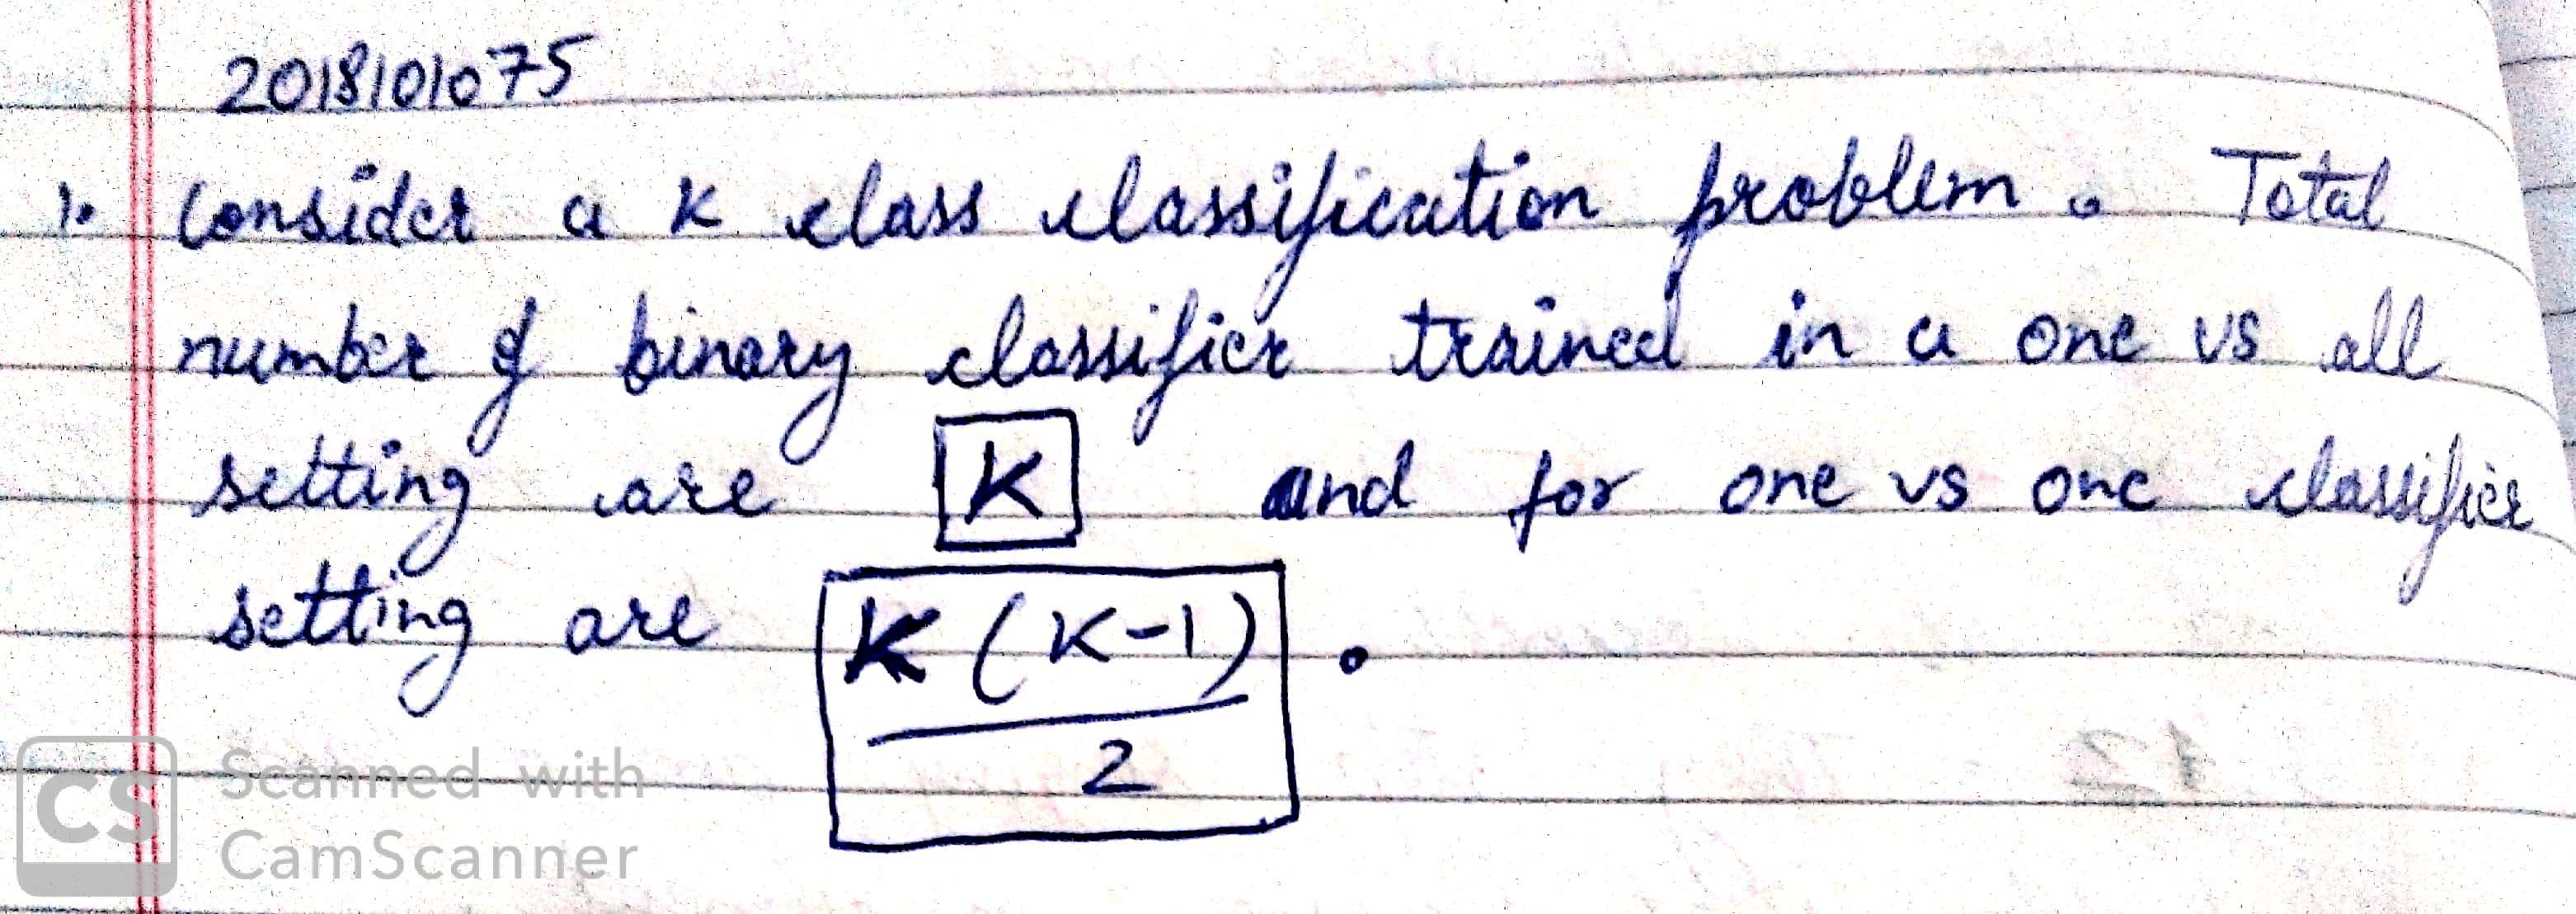 2018101075
1. Consider a K class classification problem. Total
number of binary classifier trained in a one vs all
setting are K and for one vs one classifier
setting are K(K-1)/2.
CS Scanned with
CamScanner